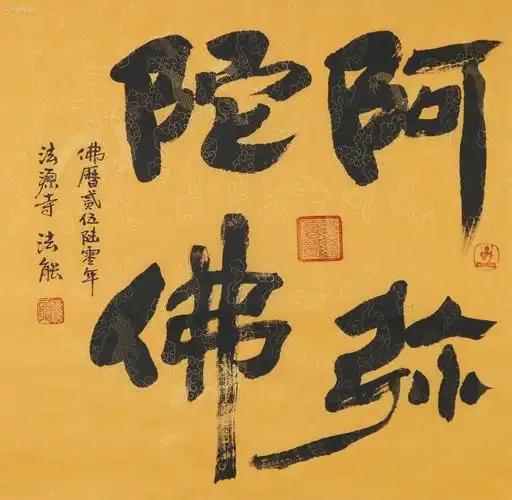 阿弥
陀佛
佛曆贰伍陆零年
法源寺 法能